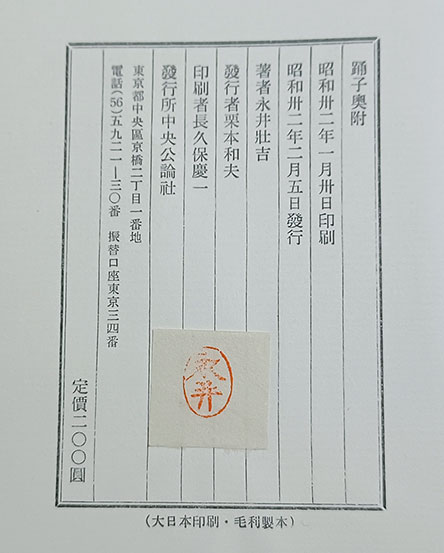 踊子奧附
昭和卅二年一月卅日印刷
昭和卅二年二月五日發行
著者永井壯吉
發行者栗本和夫
印刷者長久保慶一
發行所中央公論社
東京都中央區京橋二丁目一番地
電話(56)五九二一―三〇番 振替口座東京三四番
定價二〇〇圓
永井
(大日本印刷・毛利製本)